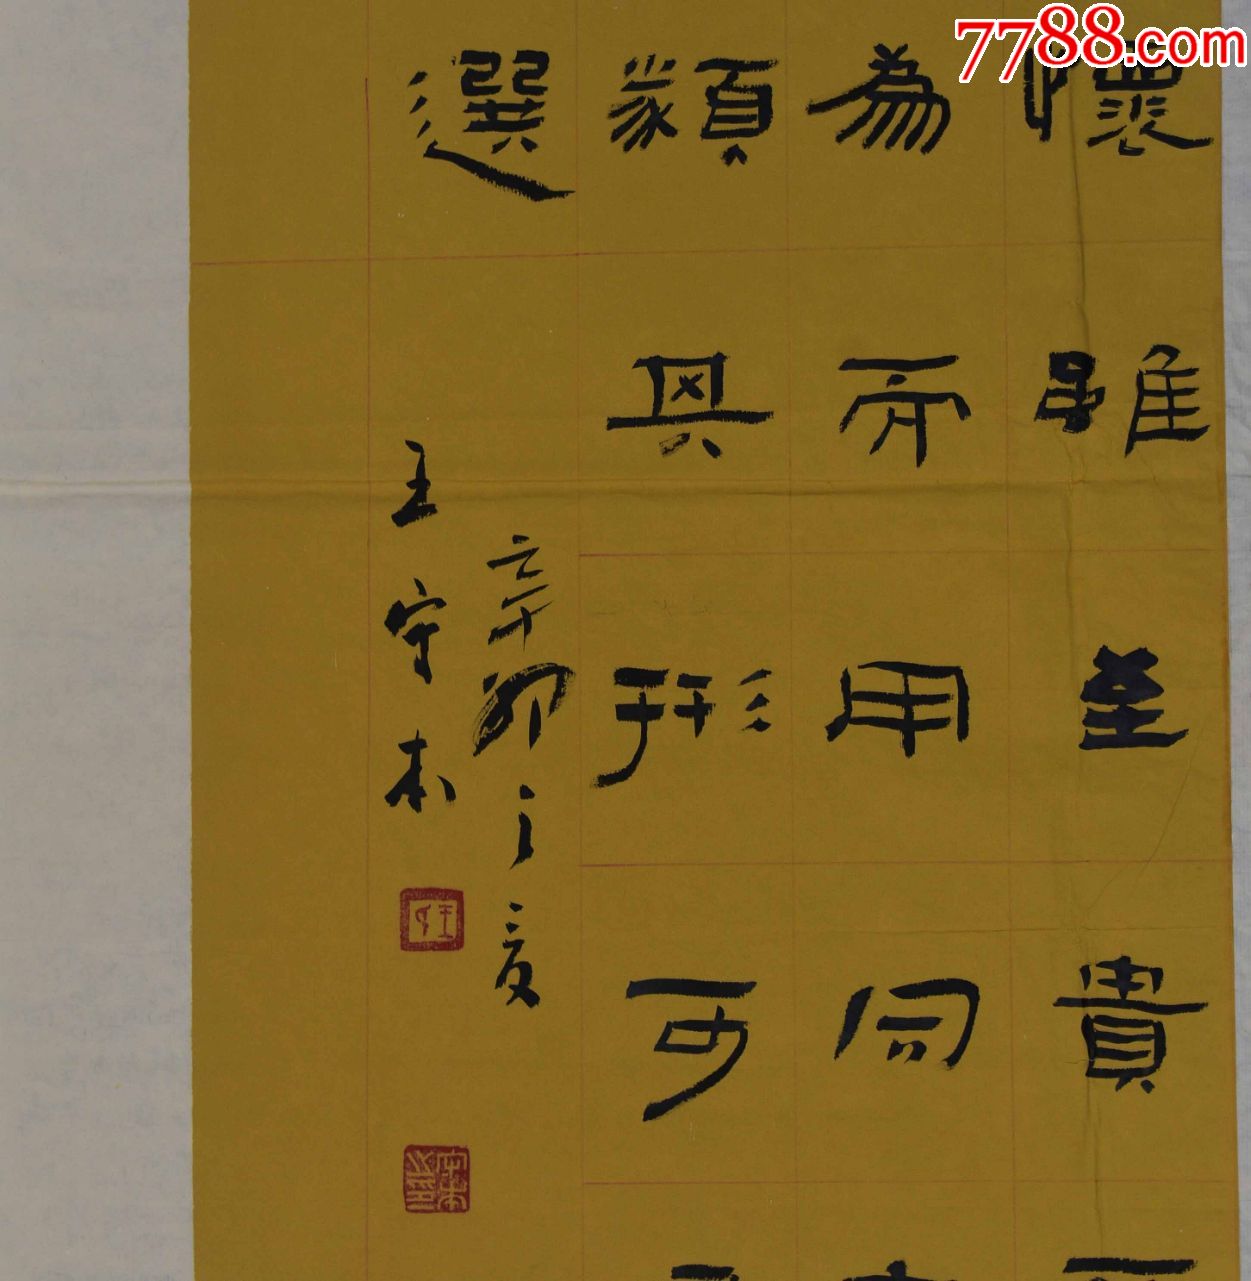 7788.com
懷雖至貴
為而用同
類其形可
選
辛卯之夏
王宇本